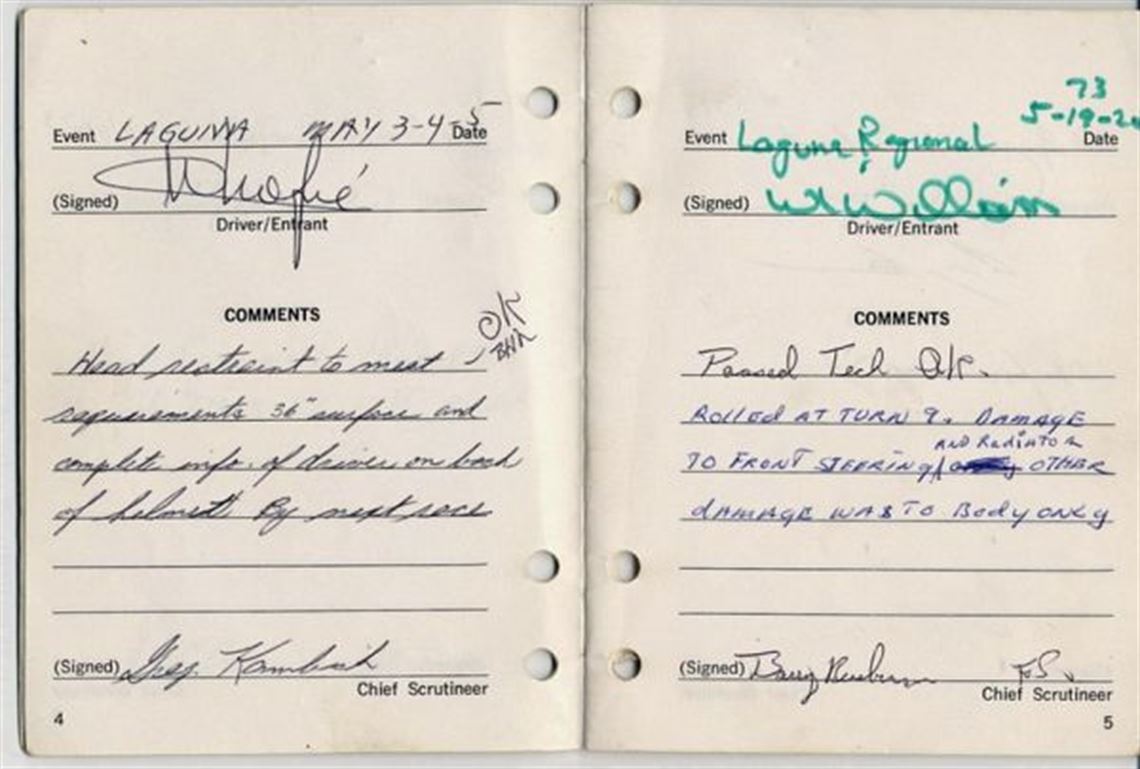 Event LAGUNA MAY 3-4-5 Date
(Signed)
Driver/Entrant
COMMENTS
OK
Head restraint to meet
requirements 36" surface and
complete info. of driver on back
of helmet By next race
(Signed) Greg
Chief Scrutineer
4
73
5-19-20
Event Laguna Regional Date
(Signed) William
Driver/Entrant
COMMENTS
Passed Tech OK.
ROLLED AT TURN 9. DAMAGE
AND RADIATOR
TO FRONT STEERING OTHER
DAMAGE WAS TO BODY ONLY
(Signed) Barry
Chief Scrutineer
5